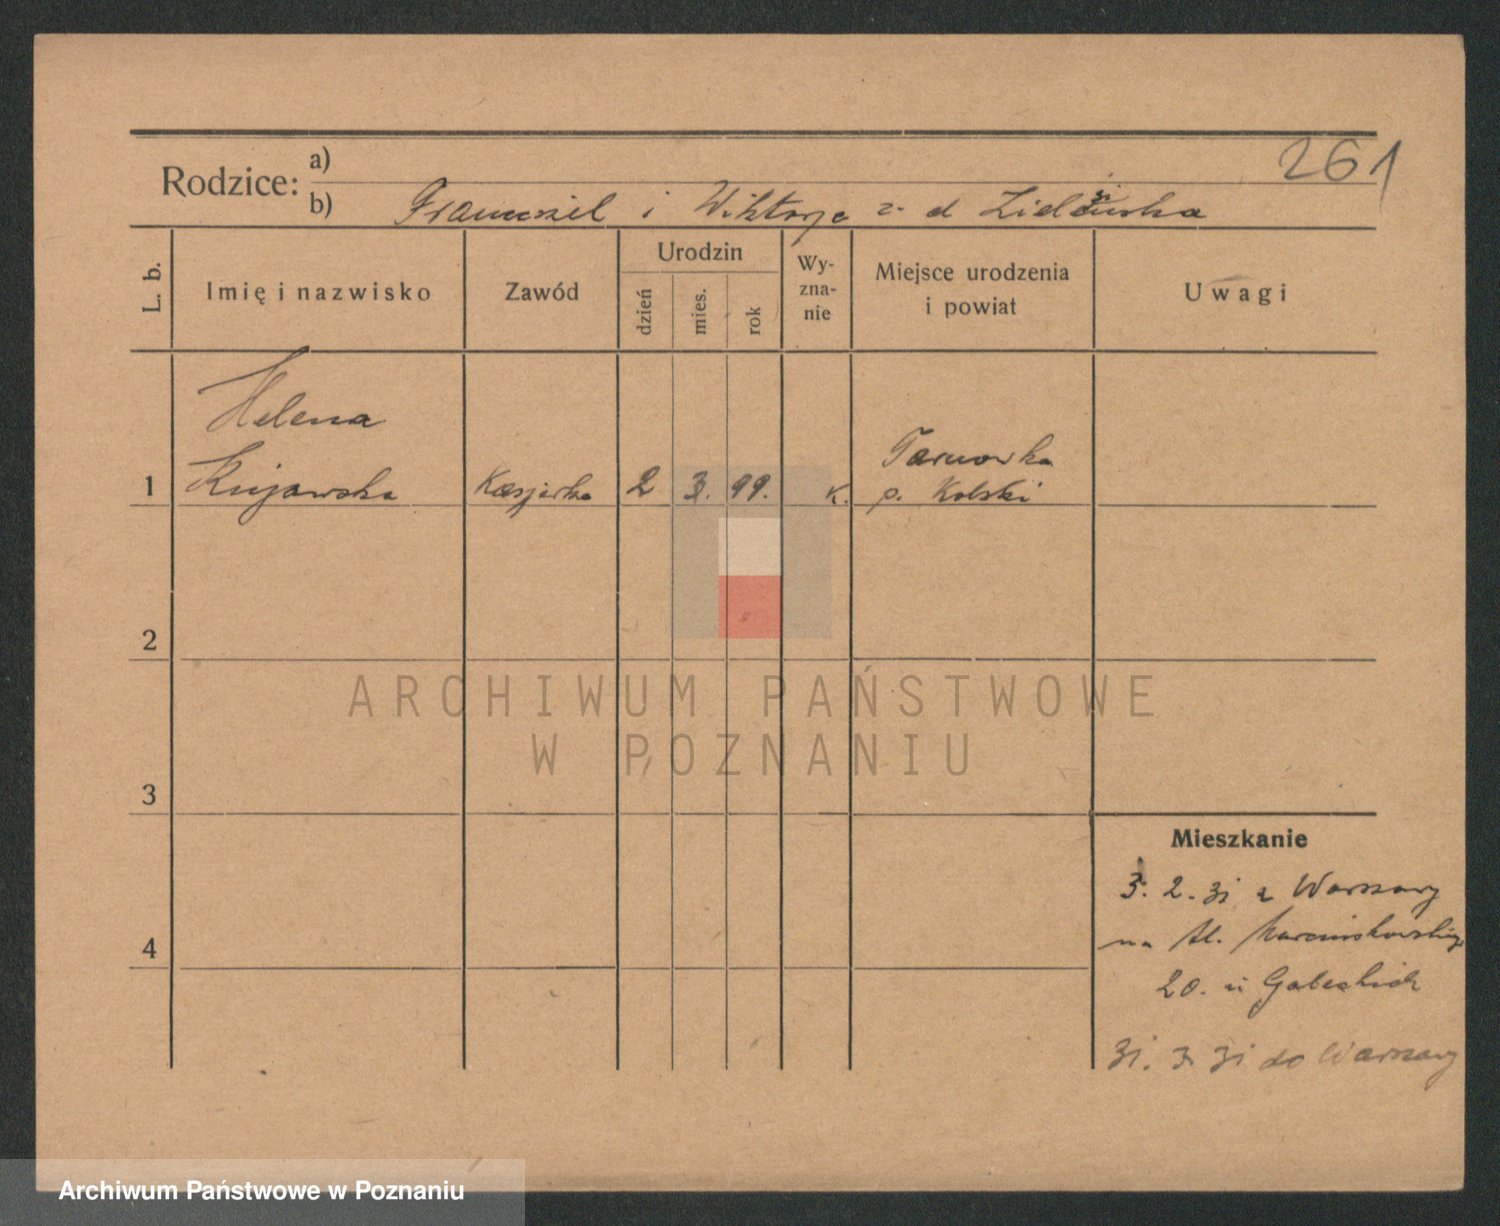 261
Rodzice: a)
b) Franciszek i Wiktorja z d Zielińska
L. b. Imię i nazwisko Zawód Urodzin dzień mies. rok Wy-zna-nie Miejsce urodzenia i powiat Uwagi
Helena
Kujawska
1 Kasjerka 2 3. 99. k. Tarnowka
p. Kolski
2
ARCHIWUM PAŃSTWOWE
W POZNANIU
3
Mieszkanie
3. 2. 31 z Warszawy
4 na Al. Marcinkowskiego
20. u Gałeckich
31. 3 31 do Warszawy
Archiwum Państwowe w Poznaniu